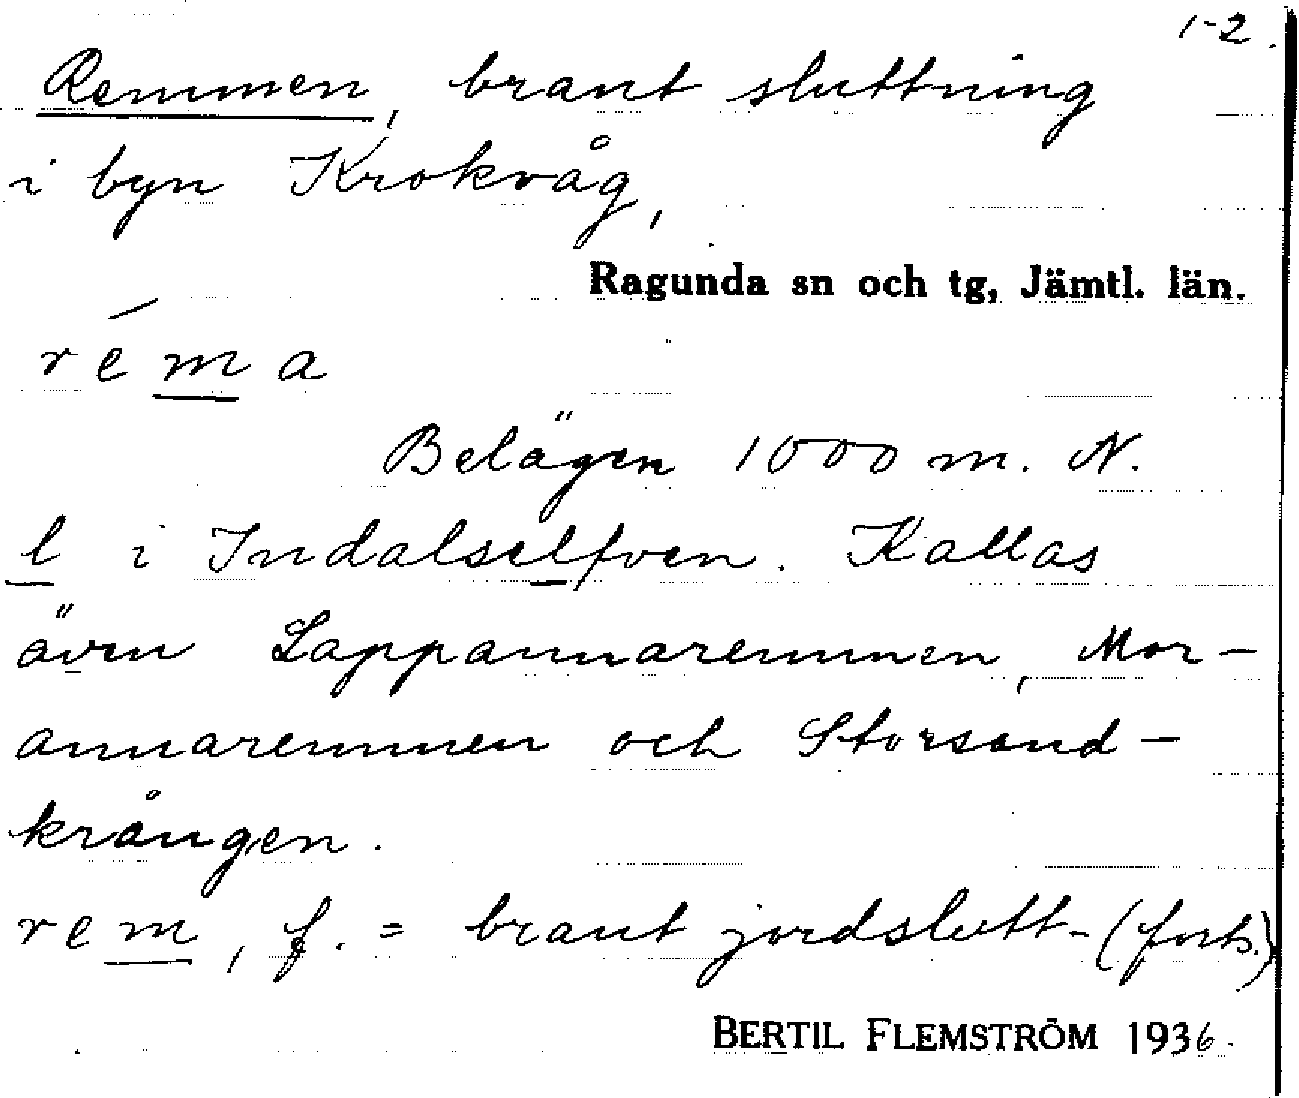 1-2.
Remmen, brant sluttning
i byn Krokvåg,
Ragunda sn och tg, Jämtl. län.
réma
Belägen 1000 m. N.
l i Indalselfven. Kallas
även Lappannaremmen, Mor-
annaremmen och Storsand-
krången.
rem, f. = brant jordslutt- (forts.)
BERTIL FLEMSTRÖM 1936.